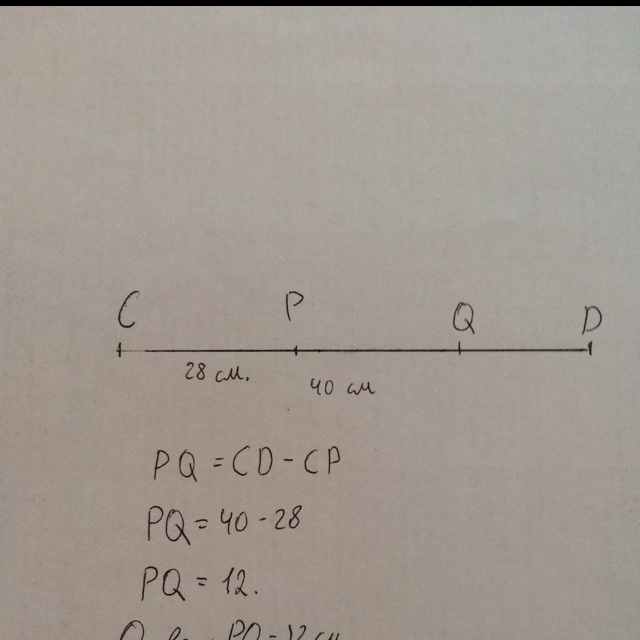 C P Q D
28 см. 40 см
PQ = CD - CP
PQ = 40 - 28
PQ = 12.
PQ = 12 см